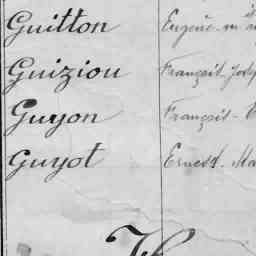 Guitton Eugène
Guiziou François
Guyon François
Guyot Ernest
H